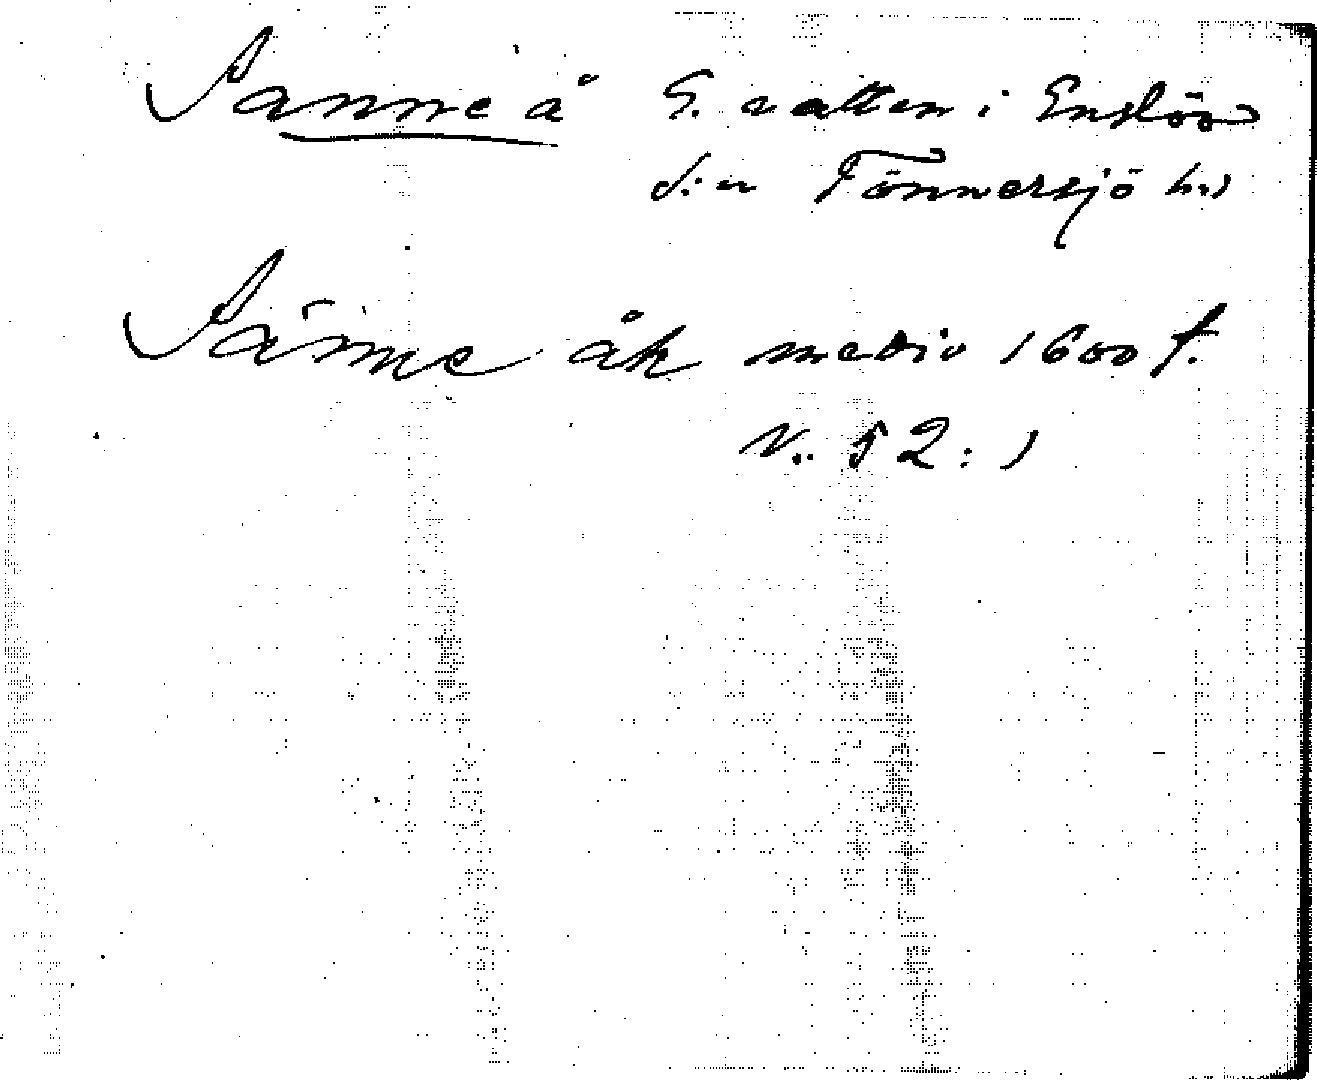 Sanne å G. vatten i Enslöv
s:n Tönnersjö hd
Sänne åk medio 1600 t.
N. 52:1